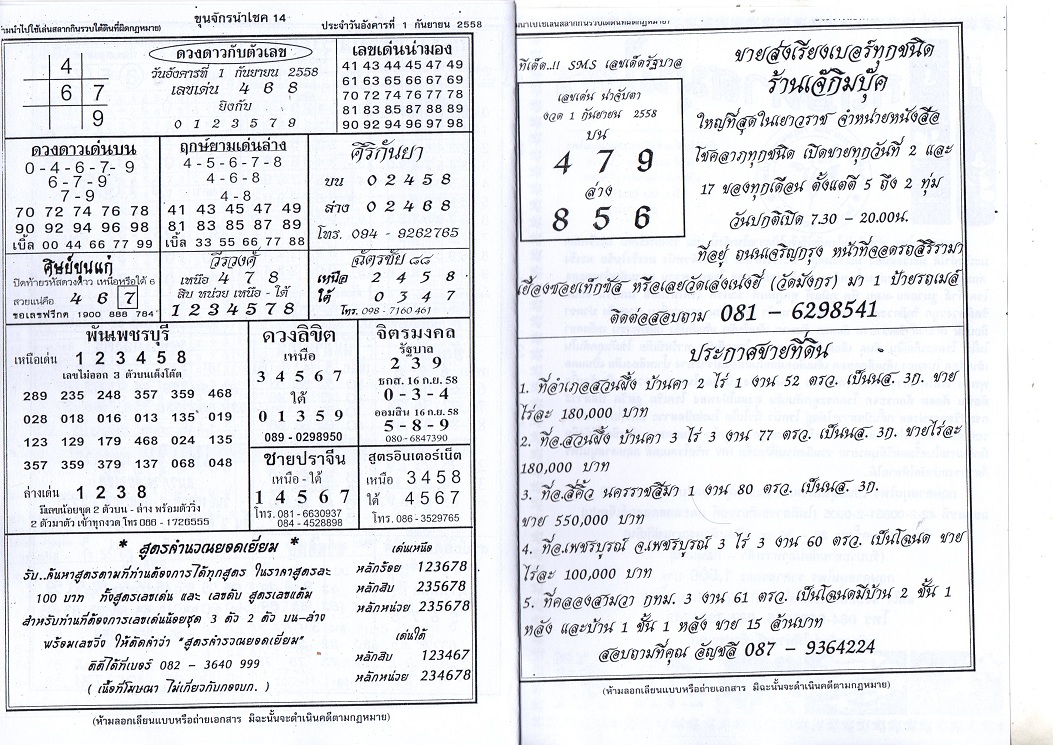 ขุนจักรนำโชค 14
ประจำวันอังคารที่ 1 กันยายน 2558
4
6 7
9
ดวงดาวกับตัวเลข
วันอังคารที่ 1 กันยายน 2558
เลขเด่น 4 6 8
ยิงกับ
0 1 2 3 5 7 9
เลขเด่นน่ามอง
41 43 44 45 47 49
61 63 65 66 67 69
70 72 74 76 77 78
81 83 85 87 88 89
90 92 94 96 97 98
ดวงดาวเด่นบน
0 - 4 - 6 - 7 - 9
6 - 7 - 9
7 - 9
70 72 74 76 78
90 92 94 96 98
เบิ้ล 00 44 66 77 99
ฤกษ์ยามเด่นล่าง
4 - 5 - 6 - 7 - 8
4 - 6 - 8
4 - 8
41 43 45 47 49
81 83 85 87 89
เบิ้ล 33 55 66 77 88
ศิริกันยา
บน 0 2 4 5 8
ล่าง 0 2 4 6 8
โทร. 094 - 9262765
ศิษย์ขุนแก่
ปิดท้ายรหัสดวงดาว เหนือหรือใต้ 6
สวยแน่คือ 4 6 7
ขอเลขฟรีกด 1900 888 784
วีรวงค์
เหนือ 4 7 8
สิบ หน่วย เหนือ - ใต้
1 2 3 4 5 7 8
ฉัตรชัย ๘๘
เหนือ 2 4 5 8
ใต้ 0 3 4 7
โทร. 098 - 7160 461
พันเพชรบุรี
เหนือเด่น 1 2 3 4 5 8
เลขไม่ออก 3 ตัวบนเต็งโต๊ด
289 235 248 357 359 468
028 018 016 013 135 019
123 129 179 468 024 135
357 359 379 137 068 048
ล่างเด่น 1 2 3 8
มีเลขน้อยชุด 2 ตัวบน - ล่าง พร้อมตัววิ่ง
2 ตัวมาตัว เข้าทุกงวด โทร 086 - 1726555
ดวงลิขิต
เหนือ
3 4 5 6 7
ใต้
0 1 3 5 9
089 - 0298950
จิตรมงคล
รัฐบาล
2 3 9
ธกส. 16 ก.ย. 58
0 - 3 - 4
ออมสิน 16 ก.ย. 58
5 - 8 - 9
080 - 6847390
ชายปราจีน
เหนือ - ใต้
1 4 5 6 7
โทร. 081 - 6630937
084 - 4528898
สูตรอินเตอร์เน็ต
เหนือ 3 4 5 8
ใต้ 4 5 6 7
โทร. 086 - 3529765
* สูตรคำนวณยอดเยี่ยม *
รับ..ค้นหาสูตรตามที่ท่านต้องการได้ทุกสูตร ในราคาสูตรละ
100 บาท ทั้งสูตรเลขเด่น และ เลขดับ สูตรเลขแต้ม
สำหรับท่านที่ต้องการเลขเด่นน้อยชุด 3 ตัว 2 ตัว บน-ล่าง
พร้อมเลขวิ่ง ให้ตัดคำว่า "สูตรคำรวณยอดเยี่ยม"
ติดิได้ที่เบอร์ 082 - 3640 999
( เนื้อที่โฆษณา ไม่เกี่ยวกับกองบก. )
เด่นเหนือ
หลักร้อย 123678
หลักสิบ 235678
หลักหน่วย 235678
เด่นใต้
หลักสิบ 123467
หลักหน่วย 234678
(ห้ามลอกเลียนแบบหรือถ่ายเอกสาร มิฉะนั้นจะดำเนินคดีตามกฎหมาย)
ทีเด็ด..!! SMS เลขเด็ดรัฐบาล
เลขเด่น น่าจับตา
งวด 1 กันยายน 2558
บน
4 7 9
ล่าง
8 5 6
ขายส่งเรียงเบอร์ทุกชนิด
ร้านเจ๊กิมบุ๊ค
ใหญ่ที่สุดในเยาวราช จำหน่ายหนังสือ
โชคลาภทุกชนิด เปิดขายทุกวันที่ 2 และ
17 ของทุกเดือน ตั้งแต่ตี 5 ถึง 2 ทุ่ม
วันปกติเปิด 7.30 - 20.00น.
ที่อยู่ ถนนเจริญกรุง หน้าที่จอดรถสิริรามา
เยื้องซอยเท็กซัส หรือเลยวัดเล่งเน่งยี่ (วัดมังกร) มา 1 ป้ายรถเมล์
ติดต่อสอบถาม 081 - 6298541
ประกาศขายที่ดิน
1. ที่อำเภอสวนผึ้ง บ้านคา 2 ไร่ 1 งาน 52 ตรว. เป็นนส. 3ก. ขาย
ไร่ละ 180,000 บาท
2. ที่อ.สวนผึ้ง บ้านคา 3 ไร่ 3 งาน 77 ตรว. เป็นนส. 3ก. ขายไร่ละ
180,000 บาท
3. ที่อ.สีคิ้ว นครราชสีมา 1 งาน 80 ตรว. เป็นนส. 3ก.
ขาย 550,000 บาท
4. ที่อ.เพชรบูรณ์ จ.เพชรบูรณ์ 3 ไร่ 3 งาน 60 ตรว. เป็นโฉนด ขาย
ไร่ละ 100,000 บาท
5. ที่คลองสามวา กทม. 3 งาน 61 ตรว. เป็นโฉนดมีบ้าน 2 ชั้น 1
หลัง และบ้าน 1 ชั้น 1 หลัง ขาย 15 ล้านบาท
สอบถามที่คุณ อัญชลี 087 - 9364224
(ห้ามลอกเลียนแบบหรือถ่ายเอกสาร มิฉะนั้นจะดำเนินคดีตามกฎหมาย)